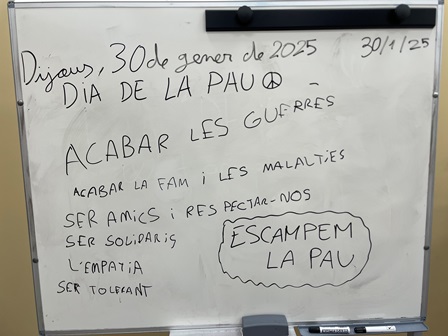 Dijous, 30 de gener de 2025
30/1/25
DIA DE LA PAU ☮
ACABAR LES GUERRES
ACABAR LA FAM i LES MALALTIES
SER AMICS i RESPECTAR-NOS
SER SOLIDARIS
L'EMPATIA
SER TOLERANT
ESCAMPEM
LA PAU